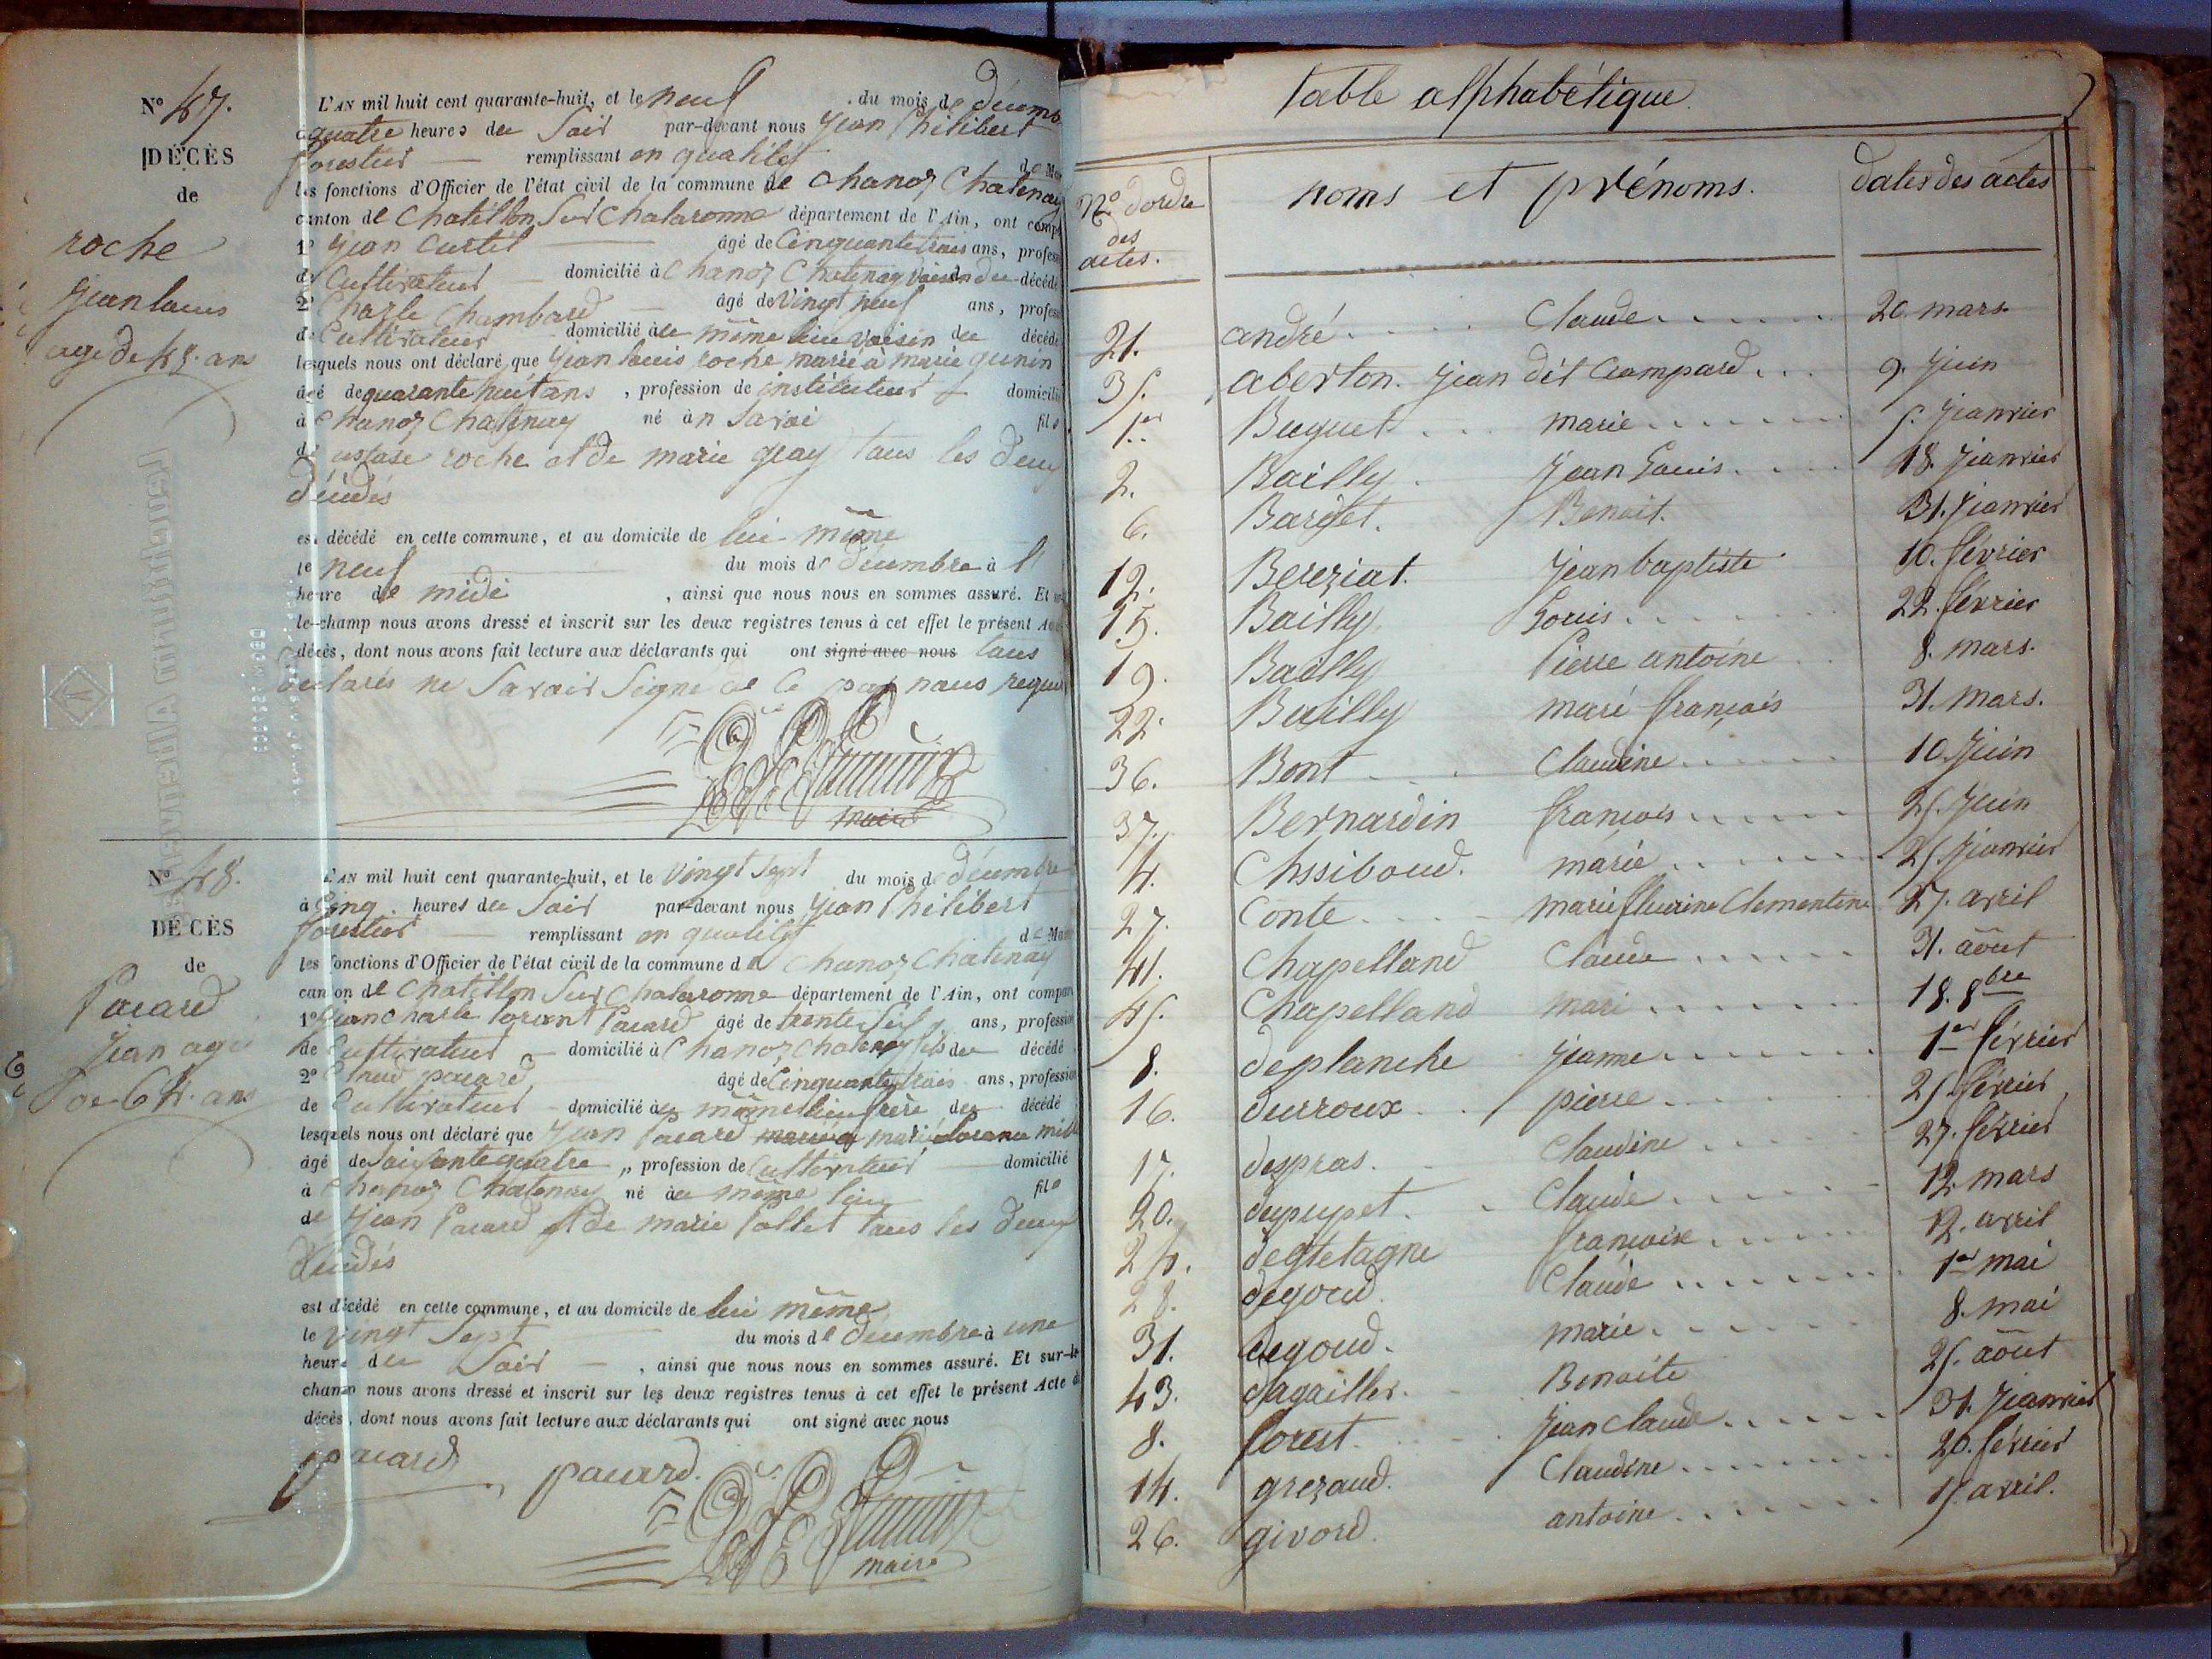 N° 47.
DÉCÈS
de
roche
jean louis
agé de 48. ans
L'AN mil huit cent quarante-huit, et le neuf du mois de décemb
à quatre heures du Soir par-devant nous jean Philibert
forestier remplissant en qualité de Mai
les fonctions d'Officier de l'état civil de la commune de chanoz Chatenay
canton de Chatillon Sur Chalaronne département de l'Ain, ont comp
1° jean curtil âgé de Cinquante trois ans, profess
de Cultivateur domicilié à Chanoz Chatenay voisin du décédé
2° Charle Chambard âgé de Vingt neuf ans, profess
de Cultivateur domicilié au même lieu voisin du décédé
lesquels nous ont déclaré que jean louis roche marié à marie
âgé de quarante huit ans, profession de instituteur domicilié
à Chanoz Chatenay né à fils
de roche et de marie tous les deux
décédés
est décédé en cette commune, et au domicile de lui même
le neuf du mois de décembre à
heure de midi, ainsi que nous nous en sommes assuré. Et sur-
le-champ nous avons dressé et inscrit sur les deux registres tenus à cet effet le présent Acte
décès, dont nous avons fait lecture aux déclarants qui ont signé avec nous tous
declarés ne Savoir Signe de ce par nous requis
maire
N° 48.
DÉCÈS
de
Pacard
jean agé
de 64. ans
L'AN mil huit cent quarante-huit, et le vingt Sept du mois de décembre
à Cinq heures du Soir par-devant nous jean Philibert
forestier remplissant en qualité de Mai
les fonctions d'Officier de l'état civil de la commune de Chanoz Chatenay
canton de Chatillon Sur Chalaronne département de l'Ain, ont compar
1° jean charle Pacard âgé de trente Six ans, profession
de Cultivateur domicilié à Chanoz Chatenay fils du décédé
2° pacard âgé de Cinquante trois ans, profession
de Cultivateur domicilié au même lieu frère du décédé
lesquels nous ont déclaré que jean Pacard marié à
âgé de Soixante quatre, profession de Cultivateur domicilié
à Chanoz Chatenay né au même lieu fils
de jean Pacard et de marie Pollet tous les deux
décédés
est décédé en cette commune, et au domicile de lui même
le vingt Sept du mois de décembre à une
heure du Soir, ainsi que nous nous en sommes assuré. Et sur-le-
champ nous avons dressé et inscrit sur les deux registres tenus à cet effet le présent Acte d
décès, dont nous avons fait lecture aux déclarants qui ont signé avec nous
pacard pacard.
maire
Table alphabétique.
N° d'ordre des actes. noms et prénoms. dates des actes
21. andré Claude 20 mars.
35. aberton. jean dit Campard 9. juin
1er Buguet marie 5. jeanvier
2. Bailly jean Louis 18. jeanvier
6. Barget. Benoit. 31. jeanvier
12. Bereziat. jean baptiste 10. février
15. Bailly Louis 22. février
19. Bailly Pierre antoine 8. mars.
22. Bailly marie françois 31. mars.
36. Bont Claudine 10 juin
37. Bernardin francois 25. juin
4. Chssiboud. marie 25. jeanvier
27. Conte marie fleurine Clementine 27. avril
41. Chapelland Claude 31. août
45. Chapelland mari 18. 8bre
8. deplanche jeanne 1er février
16. durroux pierre 25. février
17. despras. Claudine 27. février
20. dupupet. Claude 12. mars
24. degletagne francoise 12. avril
28. degoud. Claude 1er mai
31. degoud. marie 8. mai
43. dagailler. Benoite 25. août
8. forest jean claude 31. jeanvier
14. grezaud. Claudine 20. février
26. givord. antoine 15 avril.